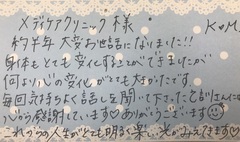 メディケアクリニック様 K♡M.
約半年大変お世話になりました!!
身体もとても変化することができましたが
何より心の変化がとても大きかったです
毎回気持ちよく話しを聞いて下さった
心から感謝しています♡ありがとうございます
これからの人生がとても明るく楽しい光がみえてきます♡